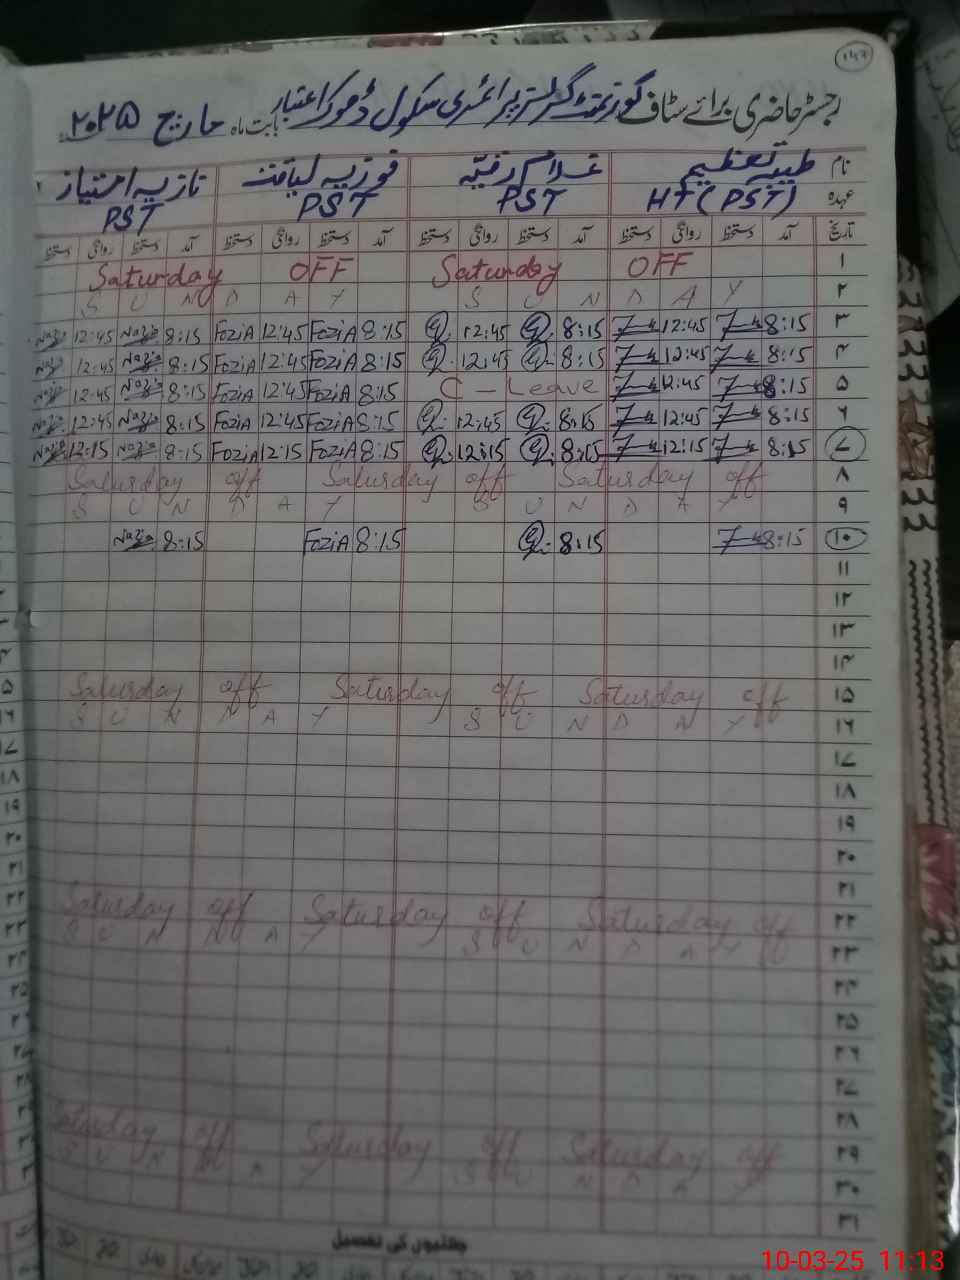 ۱۴۷
رجسٹر حاضری برائے سٹاف گورنمنٹ گرلز پرائمری سکول ڈھوک اعتبار بابت ماہ مارچ ۲۰۲۵
نام طیبہ تعظیم غلام رقیہ فوزیہ لیاقت نازیہ امتیاز
عہدہ HT (PST) PST PST PST
تاریخ آمد دستخط روانگی دستخط آمد دستخط روانگی دستخط آمد دستخط روانگی دستخط آمد دستخط روانگی دستخط
۱ Saturday OFF Saturday OFF
۲ S U N D A Y S U N D A Y
۳ Nazia 12:45 Nazia 8:15 FoziA 12:45 FoziA 8:15 12:45 8:15 12:45 8:15
۴ Nazia 12:45 Nazia 8:15 FoziA 12:45 FoziA 8:15 12:45 8:15 12:45 8:15
۵ Nazia 12:45 Nazia 8:15 FoziA 12:45 FoziA 8:15 C - Leave 12:45 8:15
۶ Nazia 12:45 Nazia 8:15 FoziA 12:45 FoziA 8:15 12:45 8:15 12:45 8:15
۷ Nazia 12:15 Nazia 8:15 FoziA 12:15 FoziA 8:15 12:15 8:15 12:15 8:15
۸ Saturday off Saturday off Saturday off
۹ S U N D A Y S U N D A Y
۱۰ Nazia 8:15 FoziA 8:15 8:15 8:15
۱۱
۱۲
۱۳
۱۴
۱۵ Saturday off Saturday off Saturday off
۱۶ S U N N A Y S U N D A Y
۱۷
۱۸
۱۹
۲۰
۲۱
۲۲ Saturday off Saturday off Saturday off
۲۳ S U N N A Y S U N D A Y
۲۴
۲۵
۲۶
۲۷
۲۸
۲۹ Saturday off Saturday off Saturday off
۳۰ S U N D A Y S U N D A Y
۳۱
چھٹیوں کی تفصیل
10-03-25 11:13